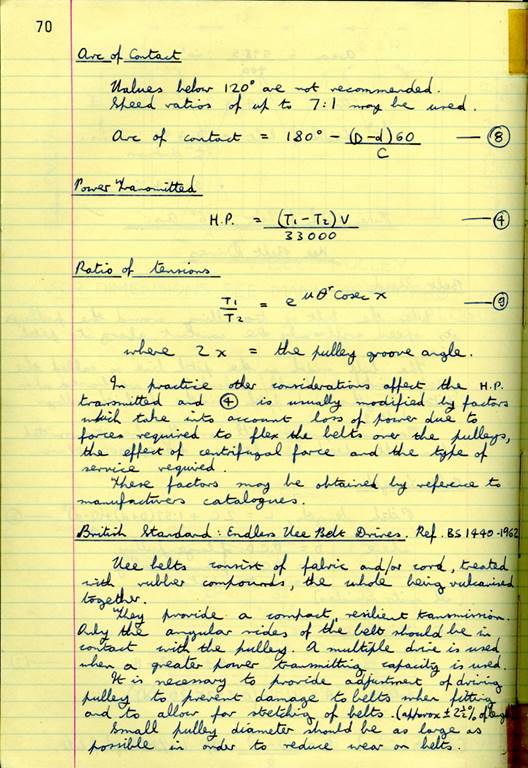 70
Arc of Contact
Values below 120° are not recommended.
Speed ratios of up to 7:1 may be used.
Arc of contact = 180° - (D-d)60 / C — ⑧
Power Transmitted
H.P. = (T₁ - T₂) V / 33000 — ④
Ratio of tensions
T₁ / T₂ = e^μθʳ cosec x — ⑨
where 2x = the pulley groove angle.
In practice other considerations affect the H.P.
transmitted and ④ is usually modified by factors
which take into account loss of power due to
forces required to flex the belts over the pulleys,
the effect of centrifugal force and the type of
service required.
These factors may be obtained by reference to
manufacturers catalogues.
British Standard: Endless Vee Belt Drives. Ref. BS 1440-1962
Vee belts consist of fabric and/or cord, treated
with rubber compounds, the whole being vulcanised
together.
They provide a compact, resilient transmission.
Only the angular sides of the belt should be in
contact with the pulley. A multiple drive is used
when a greater power transmitting capacity is used.
It is necessary to provide adjustment of driving
pulley to prevent damage to belts when fitting
and to allow for stretching of belts. (approx ± 2½% of length
Small pulley diameter should be as large as
possible in order to reduce wear on belts.